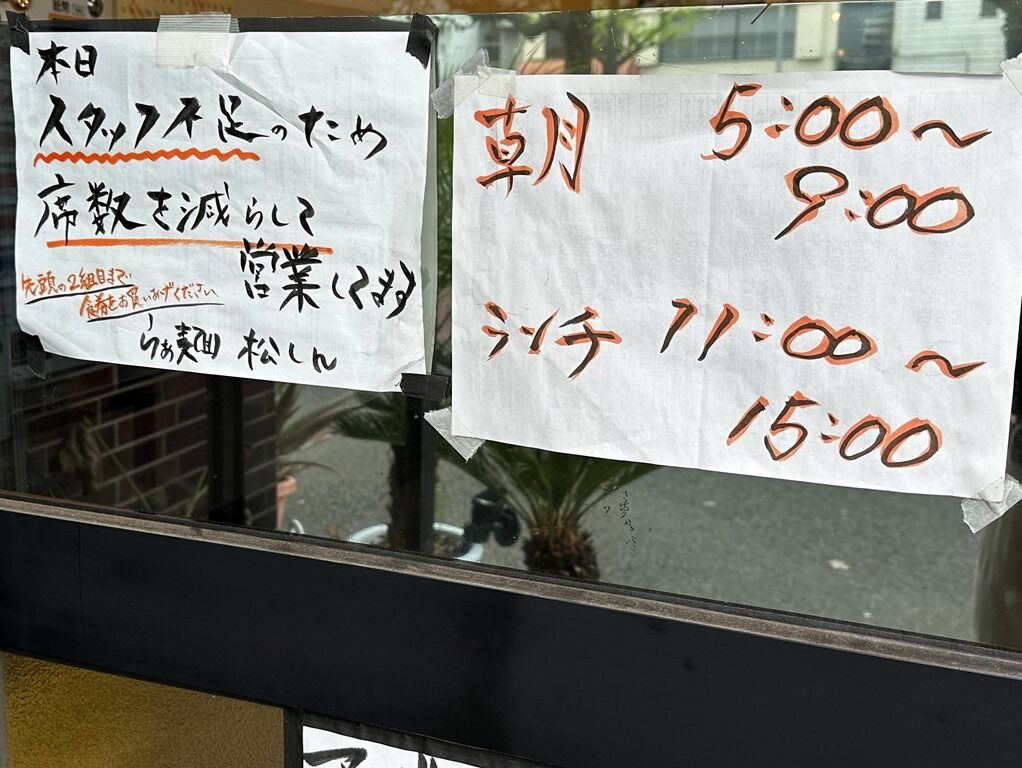 本日
スタッフ不足のため
席数を減らして
営業してます
先頭の2組目まで
食券をお買いあげください
らぁ麺 松しん
朝 5:00～
9:00
ランチ 11:00～
15:00